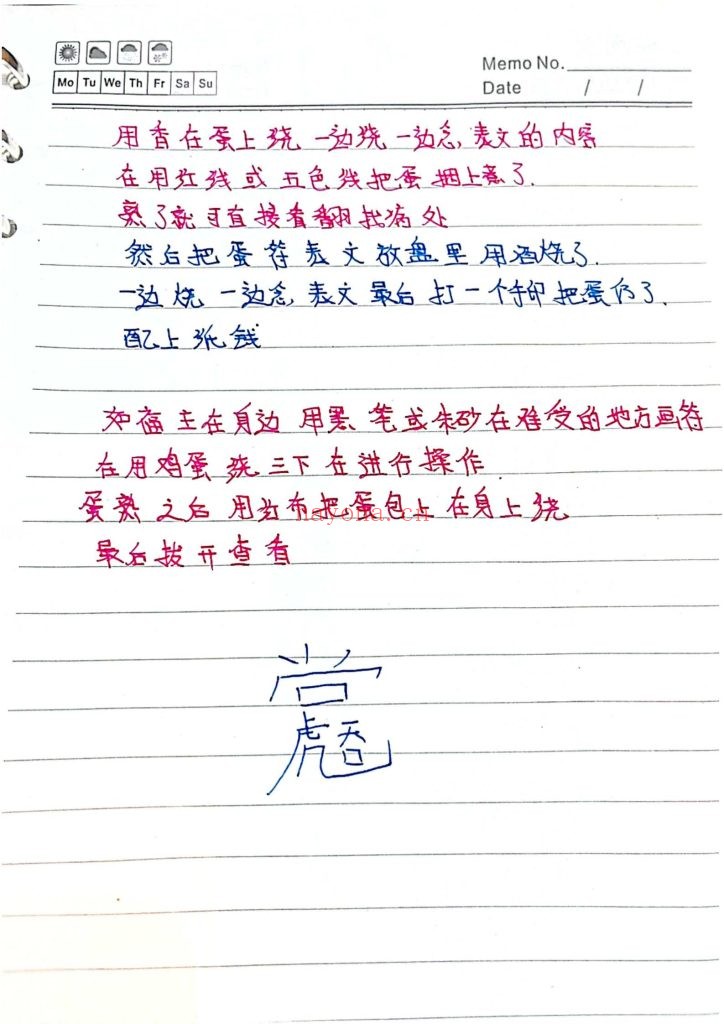 Memo No.
Mo Tu We Th Fr Sa Su
Date / /
用香在蛋上绕 一边绕一边念,表文的内容
在用红线或五色线把蛋捆上煮了.
熟了就可直接看翻找病处
然后把蛋符表文放盘里用酒烧了.
一边烧一边念,表文最后打一个手印把蛋仍了.
配上纸钱
如福主在身边 用黑笔或朱砂在难受的地方画符
在用鸡蛋绕三下在进行操作.
蛋熟之后用红布把蛋包上在身上绕
nayona.cn
最后拨开查看